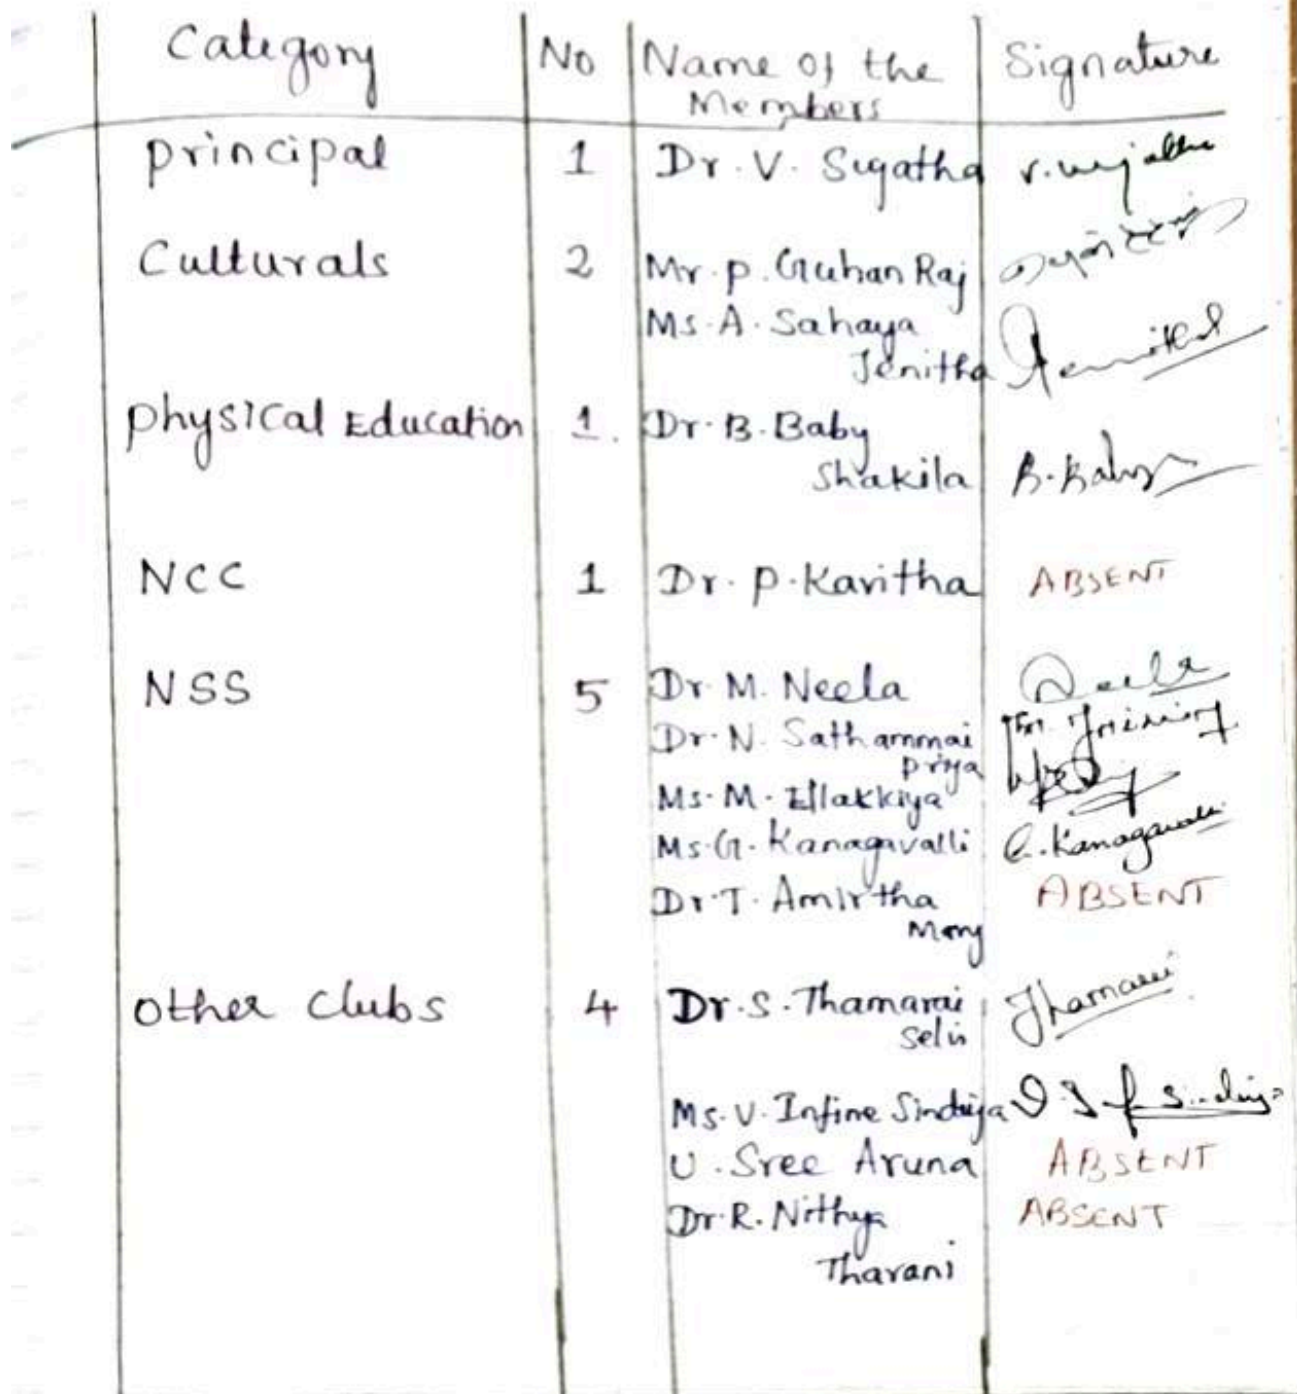 Category No Name of the Signature
Members
Principal 1 Dr. V. Sugatha
Culturals 2 Mr. P. Guhan Raj
Ms. A. Sahaya
Jenitha
Physical Education 1. Dr. B. Baby
Shakila B. Baby
NCC 1 Dr. P. Kavitha ABSENT
NSS 5 Dr. M. Neela Neela
Dr. N. Sathammai
Priya
Ms. M. Ellakkiya
Ms. G. Kanagavalli G. Kanagavalli
Dr. T. Amirtha ABSENT
Mary
Other Clubs 4 Dr. S. Thamarai Thamarai
Selvi
Ms. V. Infine Sindhiya
U. Sree Aruna ABSENT
Dr. R. Nithya ABSENT
Tharani